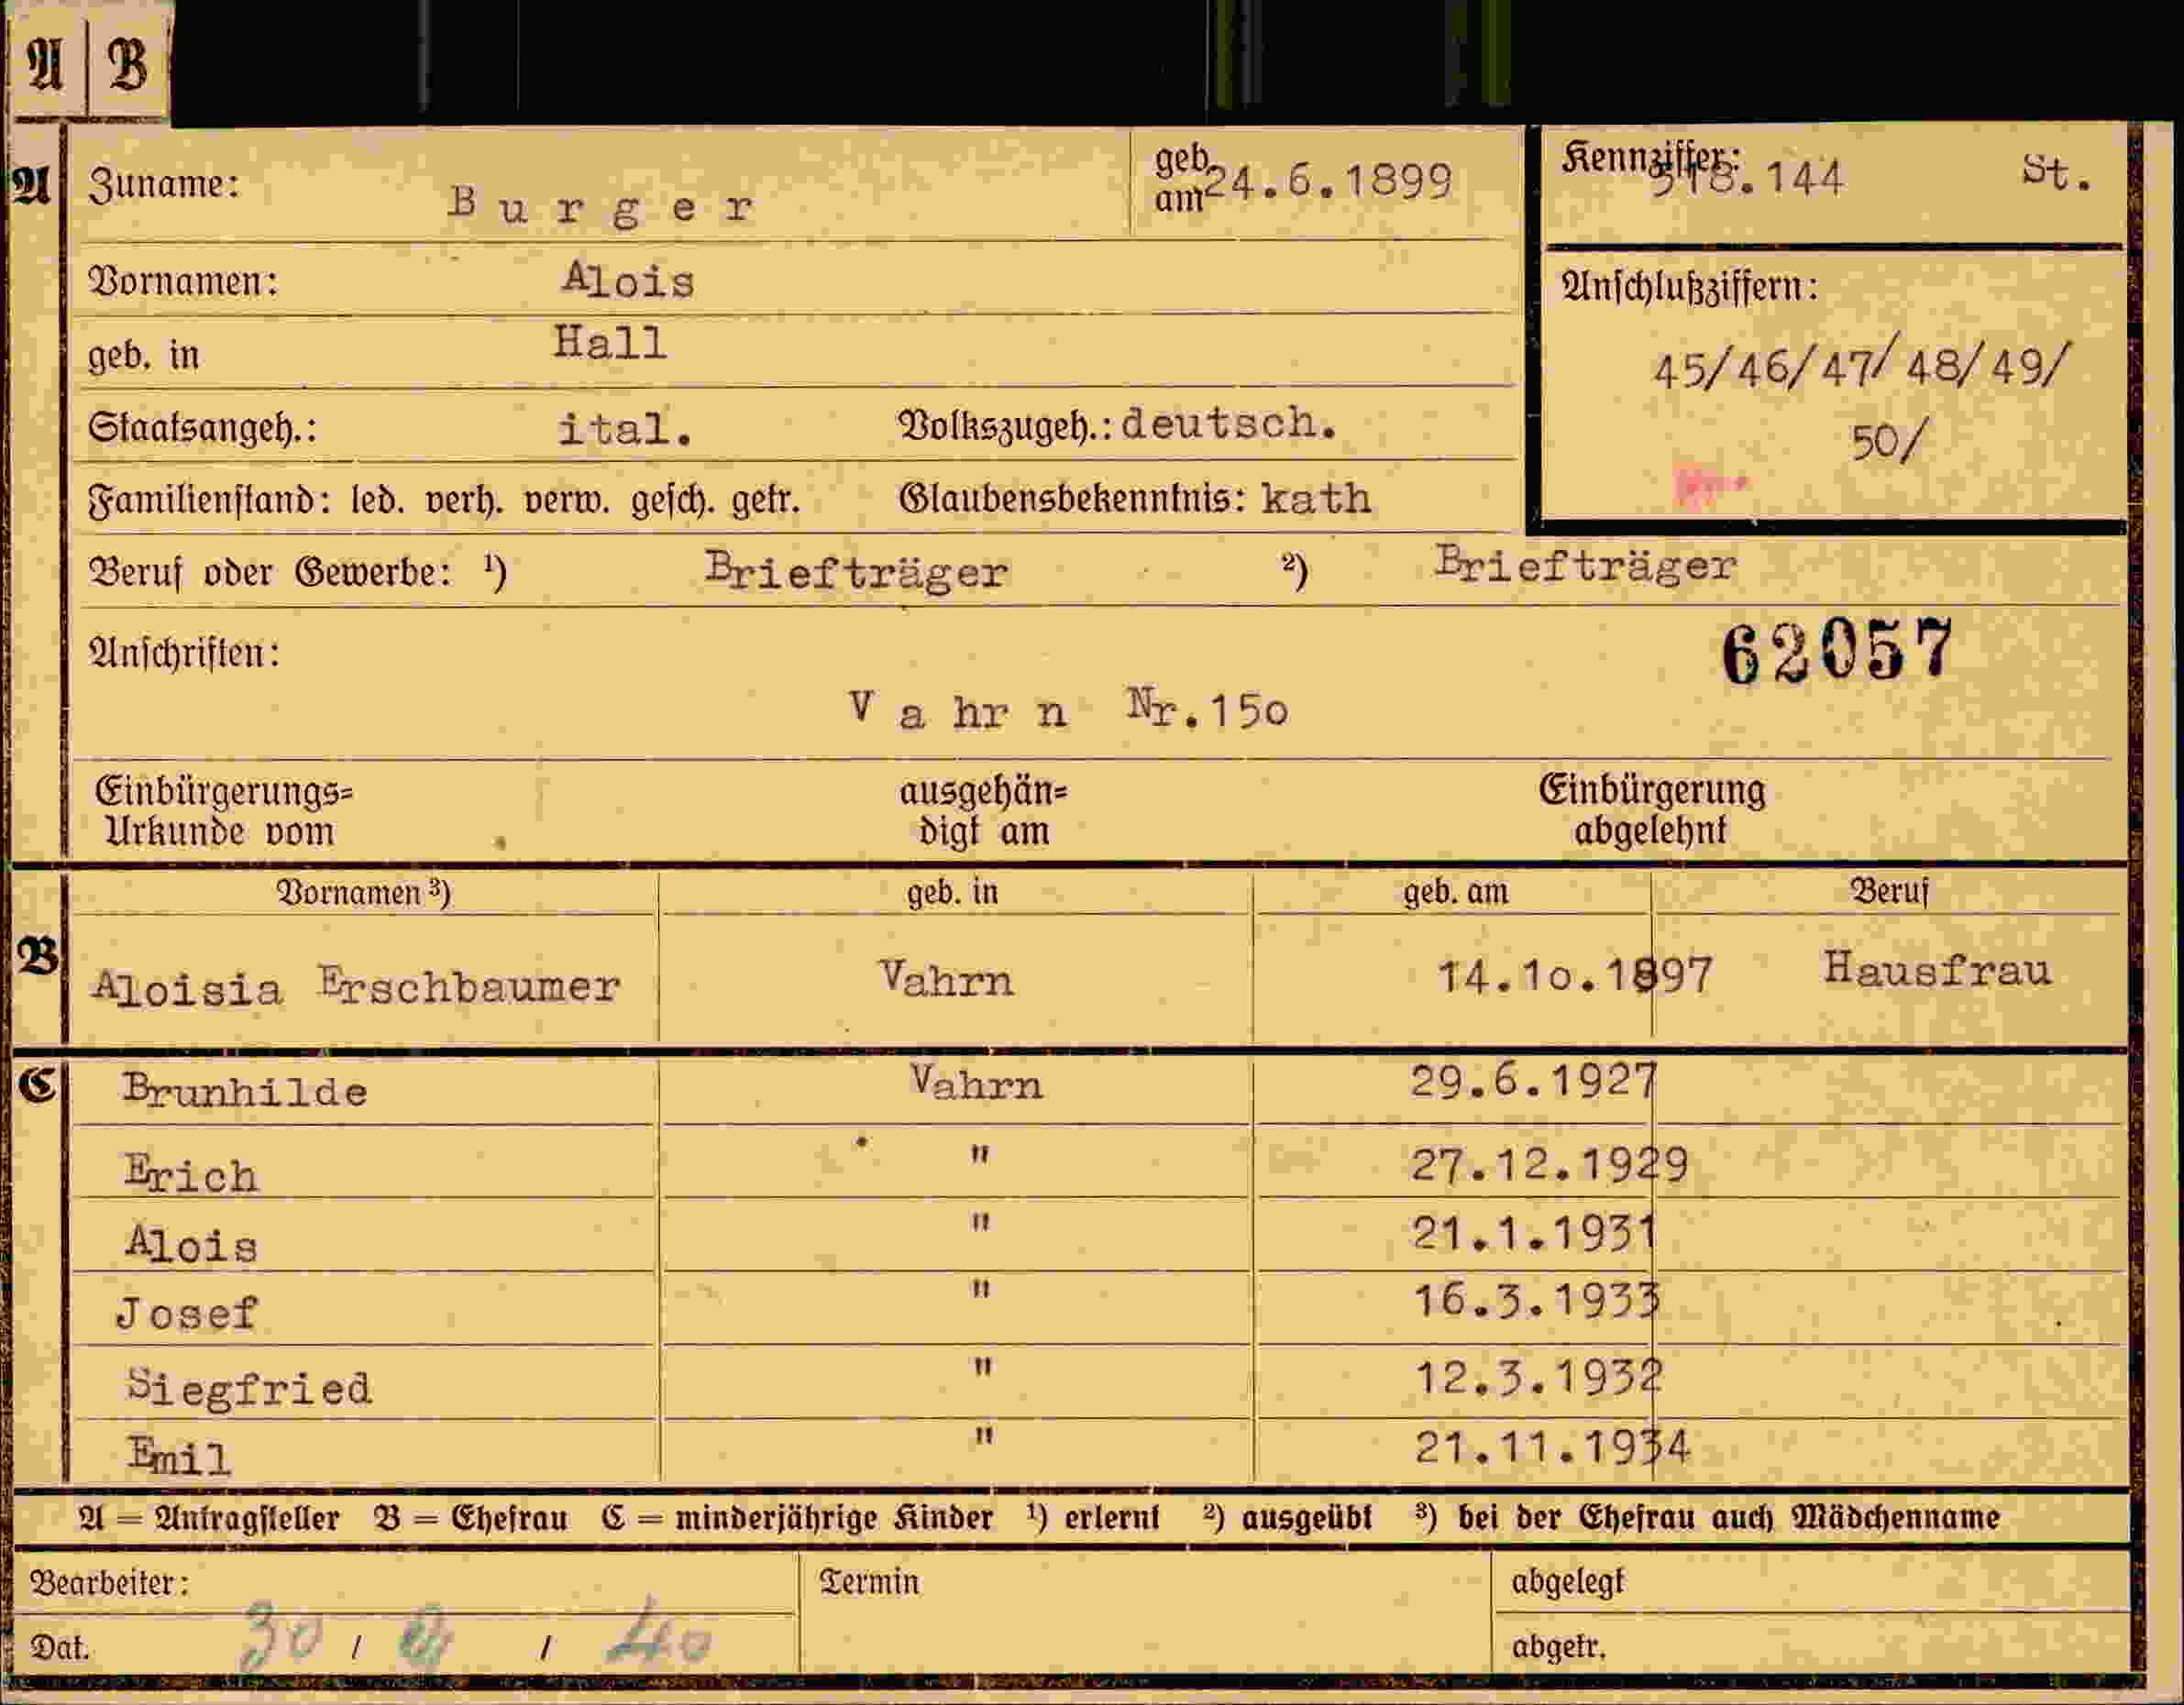 A B
A Zuname: Burger geb. am 24.6.1899 Kennziffer: 318.144 St.
Vornamen: Alois Anschlußziffern:
geb. in Hall 45/46/47/48/49/
Staatsangeh.: ital. Volkszugeh.: deutsch. 50/
Familienstand: led. verh. verw. gesch. getr. Glaubensbekenntnis: kath
Beruf oder Gewerbe: ¹) Briefträger ²) Briefträger
Anschriften: 62057
Vahrn Nr.15o
Einbürgerungs= ausgehän= Einbürgerung
Urkunde vom digt am abgelehnt
Vornamen ³) geb. in geb. am Beruf
B Aloisia Erschbaumer Vahrn 14.1o.1897 Hausfrau
C Brunhilde Vahrn 29.6.1927
Erich " 27.12.1929
Alois " 21.1.1931
Josef " 16.3.1933
Siegfried " 12.3.1932
Emil " 21.11.1934
A = Antragsteller B = Ehefrau C = minderjährige Kinder ¹) erlernt ²) ausgeübt ³) bei der Ehefrau auch Mädchenname
Bearbeiter: Termin abgelegt
Dat. 30 / / 40 abgetr.